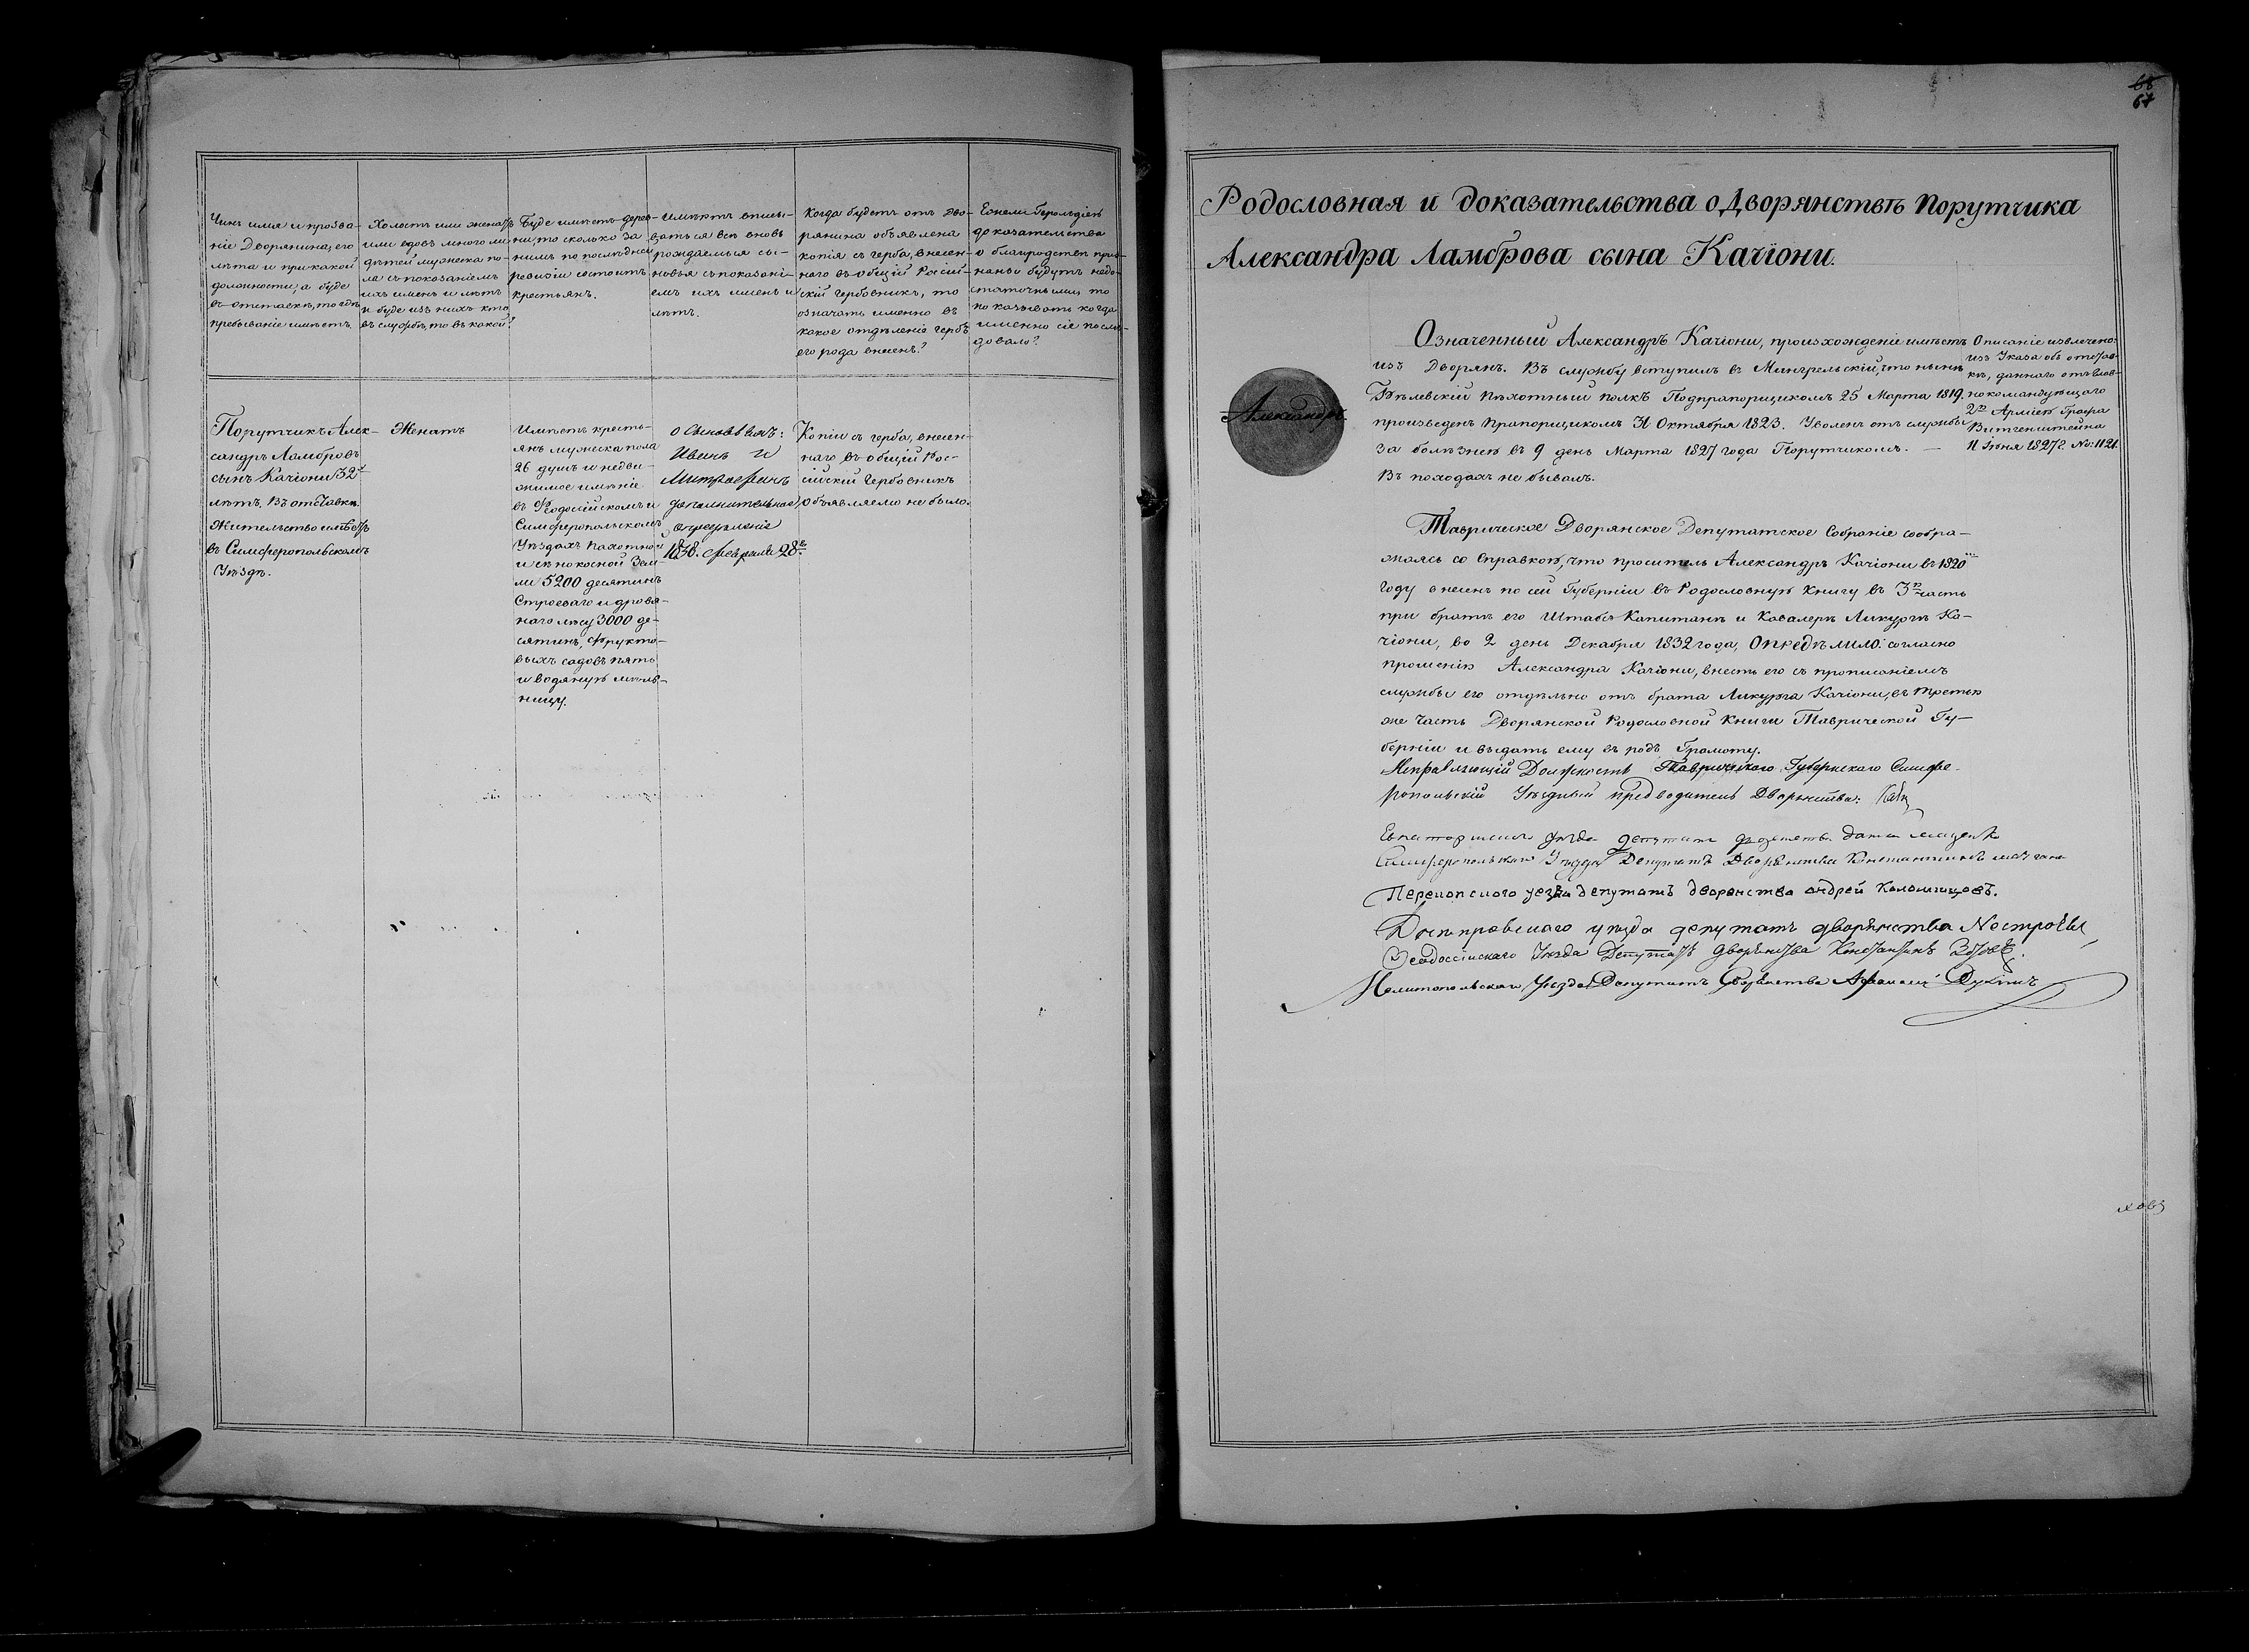 Чинъ имя и прозва-
ніе Дворянина, его
лѣта и при какой
должности; а буде
въ отставкѣ, то гдѣ
пребываніе имѣетъ.
Холостъ или женатъ
или вдовъ много ли
дѣтей мужеска по-
ла съ показаніемъ
ихъ именъ и лѣтъ
и буде изъ нихъ кто
въ службѣ, то въ какой?
Буде имѣетъ дерев-
ни, то сколько за
нимъ по послѣдней
ревизіи состоитъ
крестьянъ.
Имѣютъ вписы-
ваться всѣ вновь
рождаемыя сы-
новья съ показані-
емъ ихъ именъ и
лѣтъ.
Когда будетъ отъ дво-
рянина объявлена
копія съ герба, внесен-
наго въ общій Россій-
скій Гербовникъ, то
означать именно въ
какое отдѣленіе гербъ
его рода внесенъ?
Есмели Герольдіею
доказательства
о благородствѣ приз-
наны будутъ недо-
статочными, то
показывать когда
именно сіе послѣ-
довало?
Порутчикъ Алек-
сандръ Ламбровъ
сынъ Качіони 32
лѣтъ. Въ отставкѣ.
Жительство имѣетъ
въ Симферопольскомъ
Уѣздѣ.
Женатъ
Имѣетъ кресть-
янъ мужеска пола
26 душъ и недви-
жимое имѣніе
въ Ѳеодосійскомъ и
Симферопольскомъ
Уѣздахъ пахотной
и сѣнокосной Зем-
ли 5200 десятинъ
Строеваго и дровя-
наго лѣсу 3000 де-
сятинъ, фрукто-
выхъ садовъ пять
и водяную мѣль-
ницу.
о Сыновьяхъ:
Иванѣ и
Митрофанѣ
дополнительное
опредѣленіе
1838. февраля 28.
Копіи съ герба, внесен-
наго въ общій Рос-
сійскій Гербовникъ
объявляемо не было.
67
Родословная и доказательства о Дворянствѣ Порутчика
Александра Ламброва сына Качіони.
Александръ
Означенный Александръ Качіони, произхожденіе имѣетъ
изъ Дворянъ. Въ службу вступилъ въ Мингрельскій, что нынѣ
Бѣлевскій пѣхотный полкъ Подпрапорщикомъ 25 Марта 1819.
произведенъ Прапорщикомъ 31 Октября 1823. Уволенъ отъ службы
за болѣзнею въ 9 день Марта 1827 года Порутчикомъ. —
Въ походахъ не бывалъ.
Описаніе извлечено:
изъ Указа объ отстав-
кѣ, даннаго отъ Глав-
нокомандующаго
2й Арміею Графа
Витгенштейна
11 Іюня 1827г. №: 1121.
Таврическое Дворянское Депутатское Собраніе сообра-
жаясь со Справкою, что проситель Александръ Качіони въ 1820
году внесенъ по сей Губерніи въ Родословную Книгу въ 3ю часть
при братѣ его Штабсъ Капитанѣ и Кавалерѣ Ликургѣ Ка-
чіони, во 2 день Декабря 1832 года, Опредѣлило: согласно
прошенію Александра Качіони, внесть его съ прописаніемъ
службы его отдѣльно отъ брата Ликурга Качіони, въ третью
же Часть Дворянской Родословной Книги Таврической Гу-
берніи и выдать ему въ родъ Грамоту.
Исправляющій Должность Таврическаго Губернскаго Симфе-
ропольскій Уѣздный предводитель Дворянства:
Симферопольскаго Уѣзда Депутатъ Дворянства Константинъ
Перекопского уезда депутатъ дворенства андрей
Днепровскаго уѣзда депутатъ дворянства
Ѳеодоссійскаго Уѣзда Депутатъ Дворянства Константинъ
Мелитопольскаго Уезда Депутатъ Дворянства